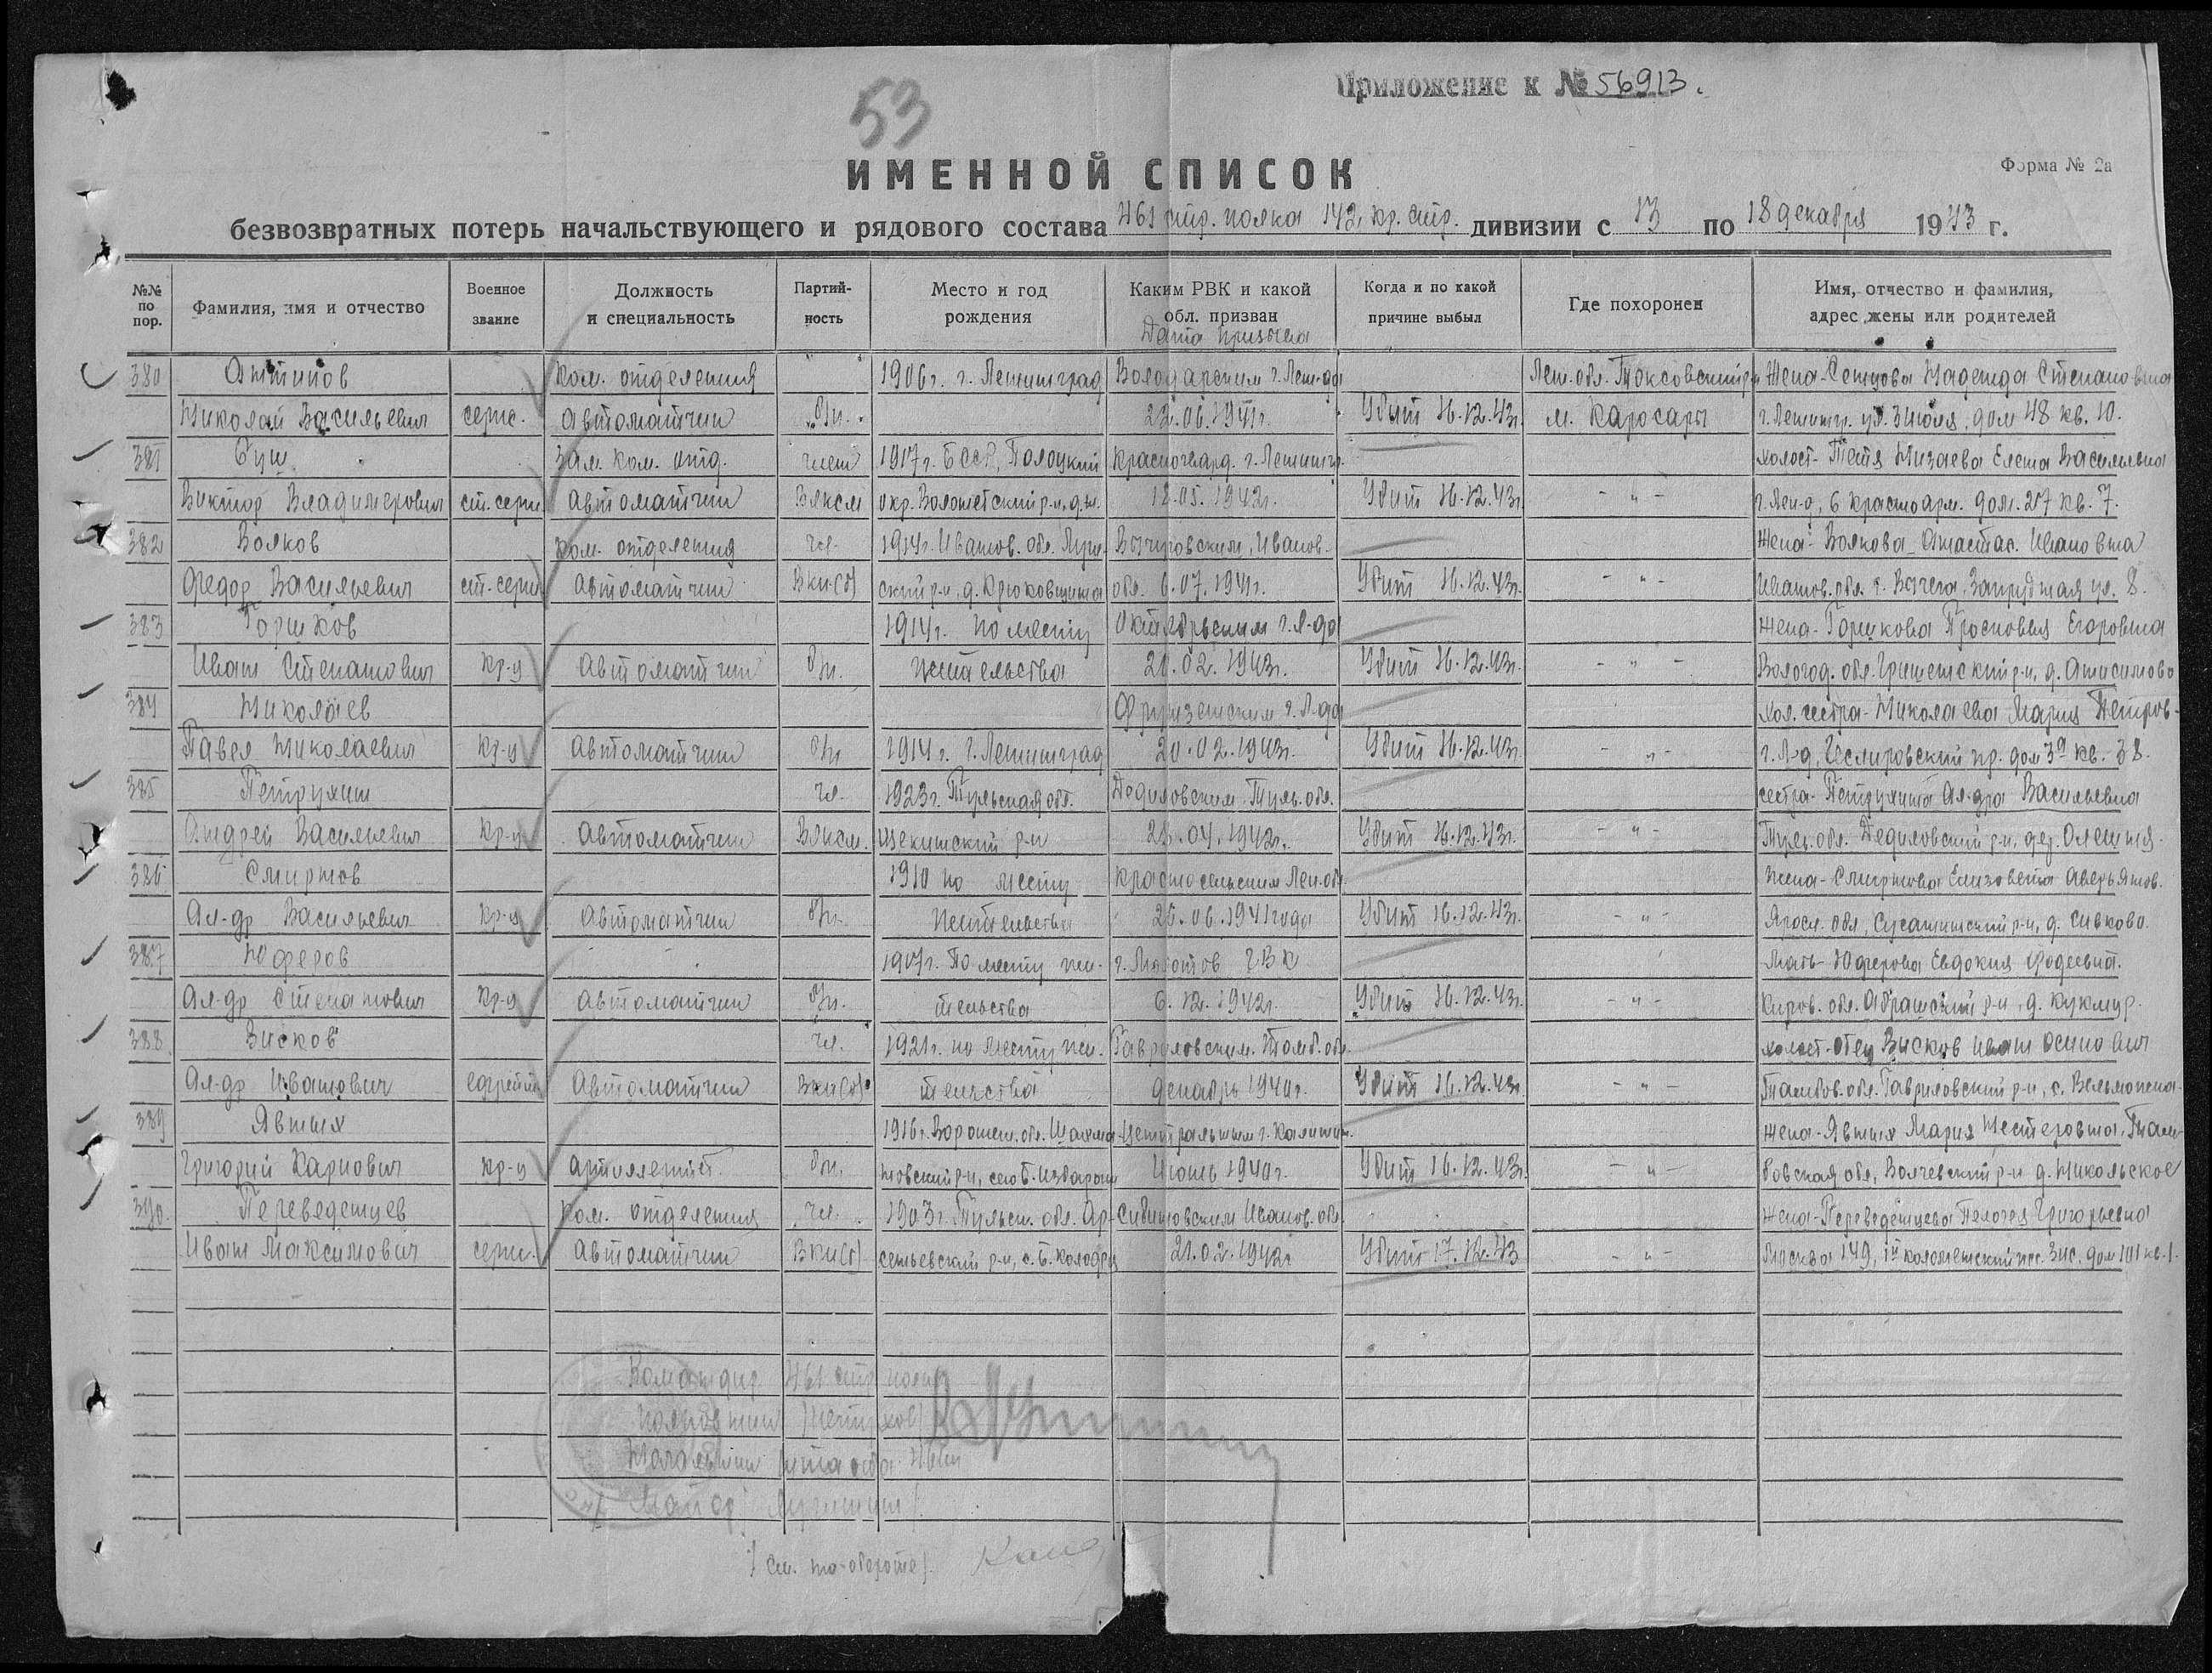 53
Приложение к № 56913.
ИМЕННОЙ СПИСОК
Форма № 2а
безвозвратных потерь начальствующего и рядового состава 461 стр. полка 142 кр. стр. дивизии с 13 по 18 декабря 1943 г.
№№ по пор.
Фамилия, имя и отчество
Военное звание
Должность и специальность
Партий-ность
Место и год рождения
Каким РВК и какой обл. призван
Дата призыва
Когда и по какой причине выбыл
Где похоронен
Имя, отчество и фамилия, адрес жены или родителей
380 ком. отделения 1906 г. г. Ленинград Володарским г. Лен-да Лен. обл. Токсовский р-н Жена- Надежда Степановна
Николай Васильевич серж. автоматчик б/п. 22.06.1941г. Убит 16.12.43г. м. Каросары г. Ленингр. ул. 3 июля, дом 48 кв. 10.
381 Буш зам. ком. отд. член 1917г. БССР, Полоцкий Красногвард. г. Ленингр. холост- Тетя Елена Васильевна
Виктор Владимирович ст. серж автоматчик Влксм окр. 12.05.1942г. Убит 16.12.43г. - " - г. Лен-д, 6 красноарм. дом. 27 кв. 7.
382 Волков ком. отделения чл. 1914г. Иванов. обл. Ивановс- Жена- Волкова Анастас. Ивановна
Федор Васильевич ст. серж автоматчик Вкп(б) ский р-н, д. Крюковщина обл. 6.07.1941г. Убит 16.12.43г. - " - Иванов. обл. г. Вичуга, Запрудная ул. 8.
383 Горшков 1914г. по месту Октябрьским г. Л-да Жена- Горшкова Просковья Егоровна
Иван Степанович кр-ц автоматчик б/п. жительства 20.02.1943г. Убит 16.12.43г. - " - Вологод. обл. р-н, д. Анисимово
384 Николаев Фрунзенским г. Л-да хол. сестра- Николаева Мария Петров-
Павел Николаевич кр-ц автоматчик б/п 1914г. г. Ленинград 20.02.1943г. Убит 16.12.43г. - " - г. Л-д, Геслеровский пр. дом 39 кв. 38.
385 Петрухин чл. 1923г. Тульская обл. Дедиловским Тульс. обл. сестра- Петрухина Ал-дра Васильевна
Андрей Васильевич кр-ц автоматчик Влксм. Щекинский р-н 1942г. Убит 16.12.43г. - " - Тульс. обл. Дедиловский р-н, дер.
386 Смирнов 1910 по месту Красносельским Лен. обл. Жена- Смирнова Елизовета Аверьянов.
Ал-др Васильевич кр-ц автоматчик б/п. жительства 26.06.1941 года Убит 16.12.43г. - " - Яросл. обл, Сусанинский р-н, д. Сивково.
387 Юферов 1907г. По месту жи- г. Молотов ГВК Мать- Юферова Евдокия Фадеевна.
Ал-др Степанович кр-ц автоматчик б/п. тельства 6.12.1942г. Убит 16.12.43г. - " - Киров. обл. р-н, д. Кукмур.
388 Висков чл. 1921г. по месту жи- Гавриловским. Тамб. обл. холост- отец Висков Иван Осипович
Ал-др Иванович ефрейт автоматчик Вкп(б) тельства декабрь 1940г. Убит 16.12.43г. - " - Тамбов. обл. Гавриловский р-н, с.
389 Явных 1916г. Ворошил. обл. Центральным г. Калинин. Жена- Явных Мария Нестеровна, Там-
Григорий Карпович кр-ц автоматчик б/п. Июнь 1940г. Убит 16.12.43г. - " - бовская обл, р-н д. Никольское
390. Переведенцев ком. отделения чл. 1903г. Тульск. обл. Ар- Иванов. обл. Жена- Переведенцева Пелагея Григорьевна
Иван Максимович серж. автоматчик Вкп(б) сеньевский р-н, с. Б. 21.02.1942г Убит 17.12.43 - " - Москва 149, дом 101 кв. 1.
Командир 461 стр полка
полковник
Начальник штаба
Майор
/ См. на обороте /.